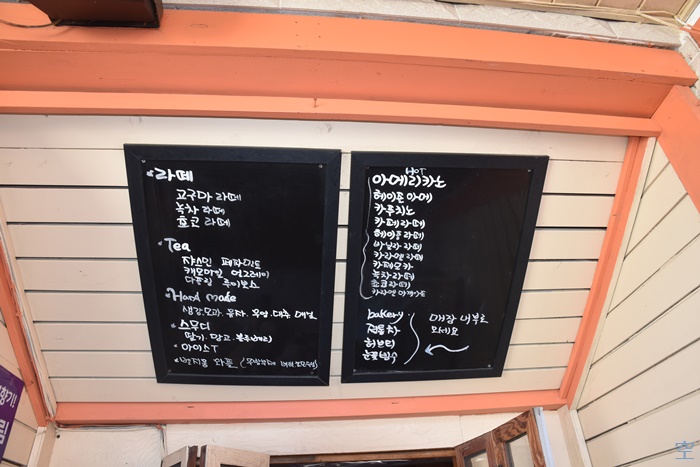 라떼
고구마 라떼
녹차 라떼
쵸코 라떼
Tea
쟈스민 페파민트
캐모마일 얼그레이
다즐링 루이보스
Hand made
생강, 모과, 유자, 목양, 대추, 매실
스무디
딸기, 망고, 블루베리
아이스T
와플
HOT
아메리카노
헤이즐 아메
카푸치노
카페 라떼
헤이즐 라떼
바닐라 라떼
카라멜 라떼
카페모카
녹차 라떼
쵸코 라떼
카라멜 마끼아또
bakery.
전통차
허브티
눈꽃빙수
매장 내부로
오세요